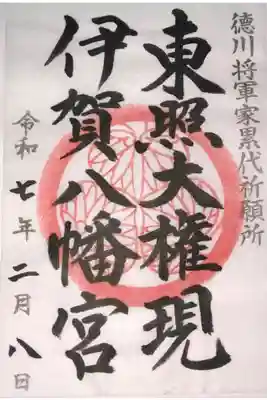 徳川将軍家累代祈願所
東照大権現
伊賀八幡宮
令和七年二月八日